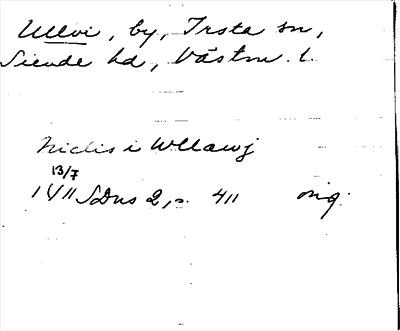 Ullvi, by, Irsta sn,
Siende hd, Västm. l.
Niclis i Wllawj
13/7
1411 SDns 2, s. 411 orig.